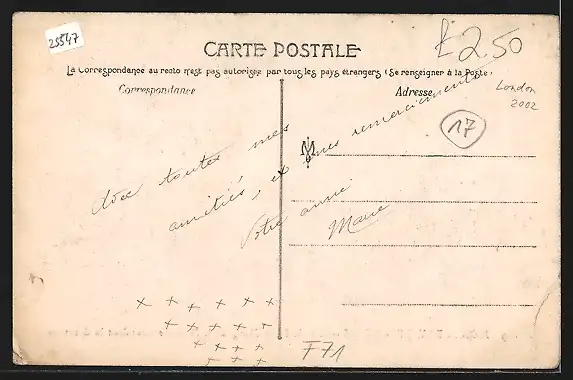 25547
£2.50
CARTE POSTALE
La Correspondance au recto n'est pas autorisée par tous les pays étrangers (Se renseigner à la Poste)
Correspondance
Adresse
London
2002
17
M
Avec toutes mes
amitiés, et mes remerciements
Votre amie
Marie
x x x x x x
x x x x x
x x x x
x x x
F71